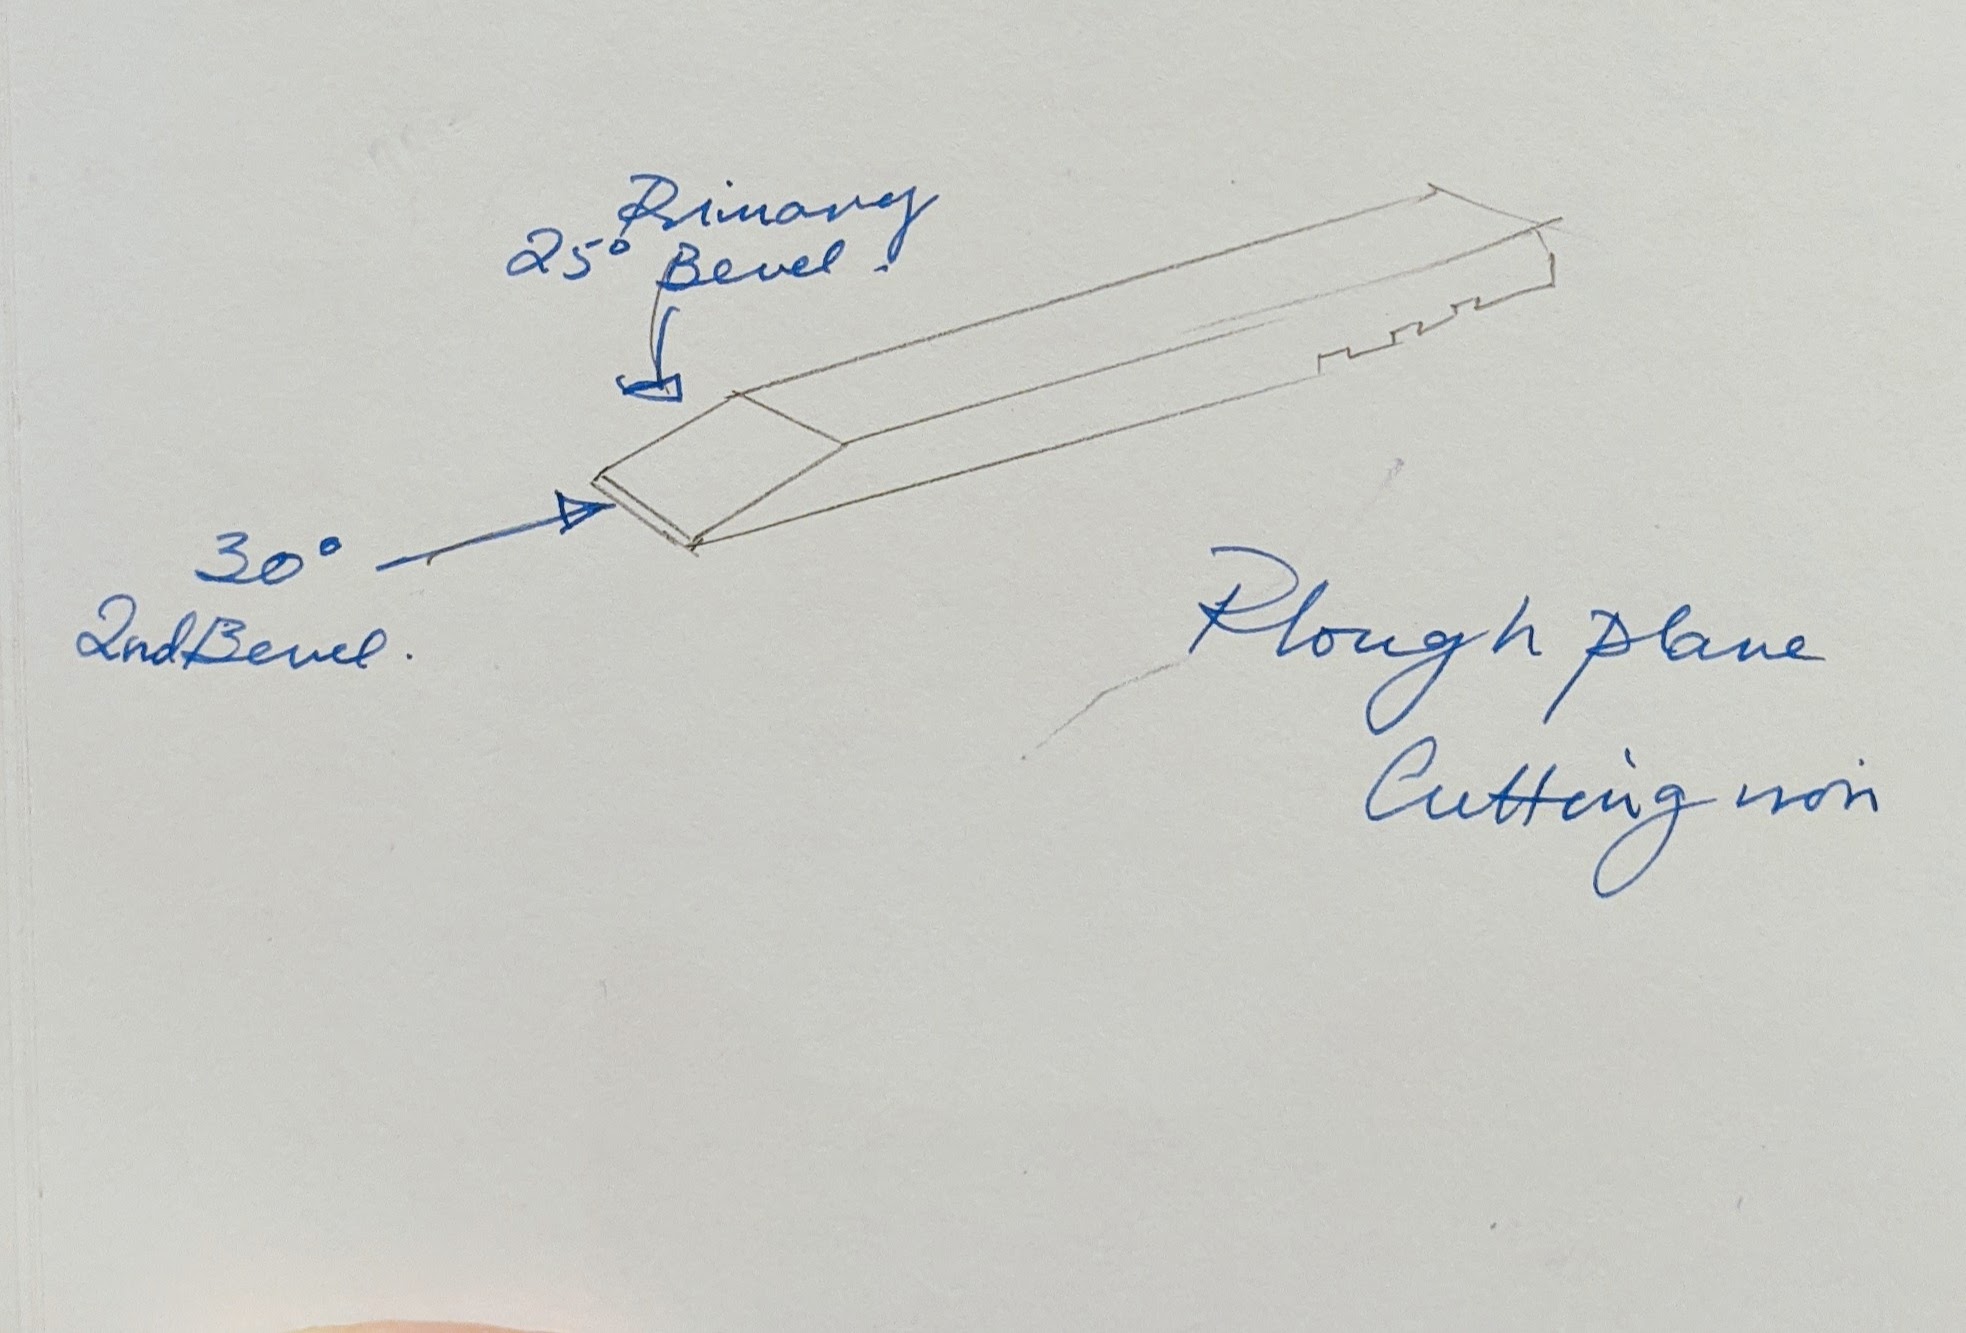 Primary
25° Bevel.
30°
2nd Bevel.
Plough plane
Cutting iron